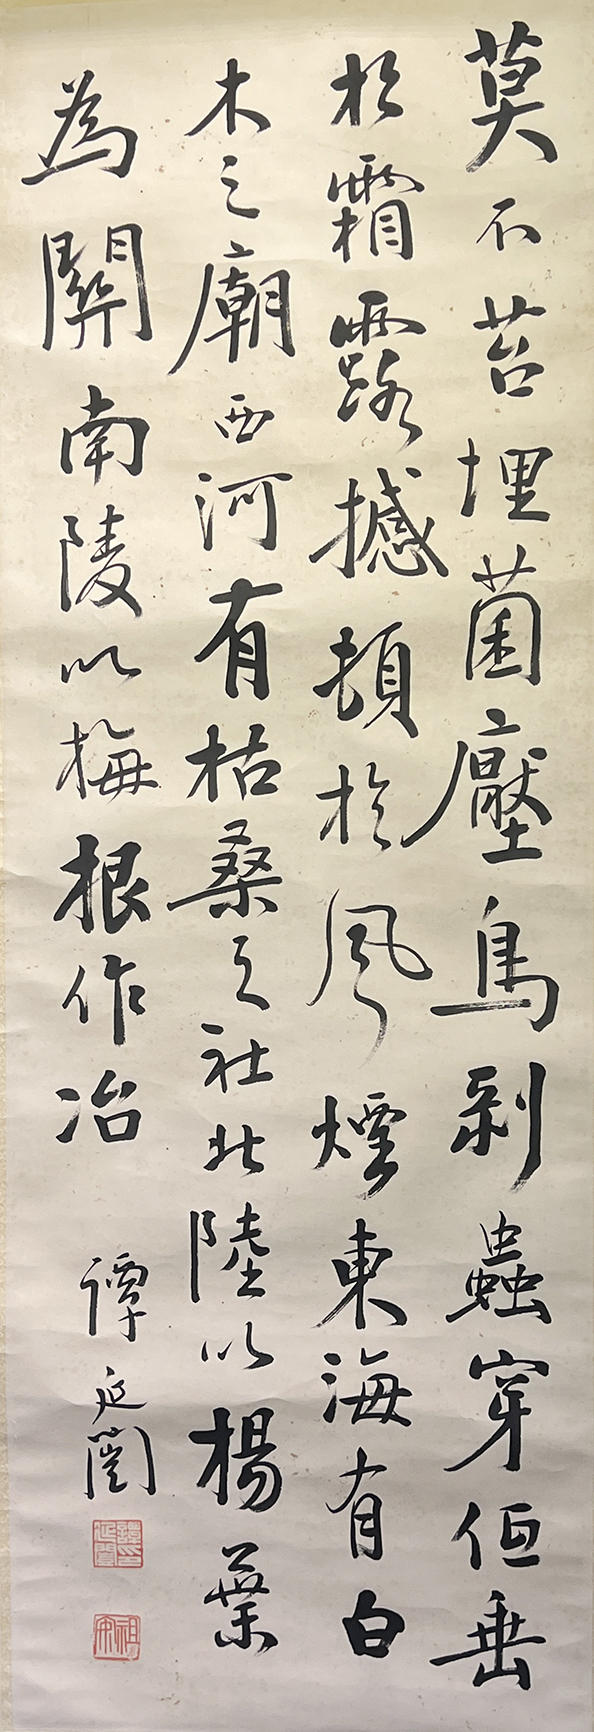 莫不苔埋菌壓鳥剝蟲穿低垂
於霜露撼頓於風煙東海有白
木之廟西河有枯桑之社北陸以楊葉
為關南陵以梅根作冶
譚延闓
譚延闓印
祖安